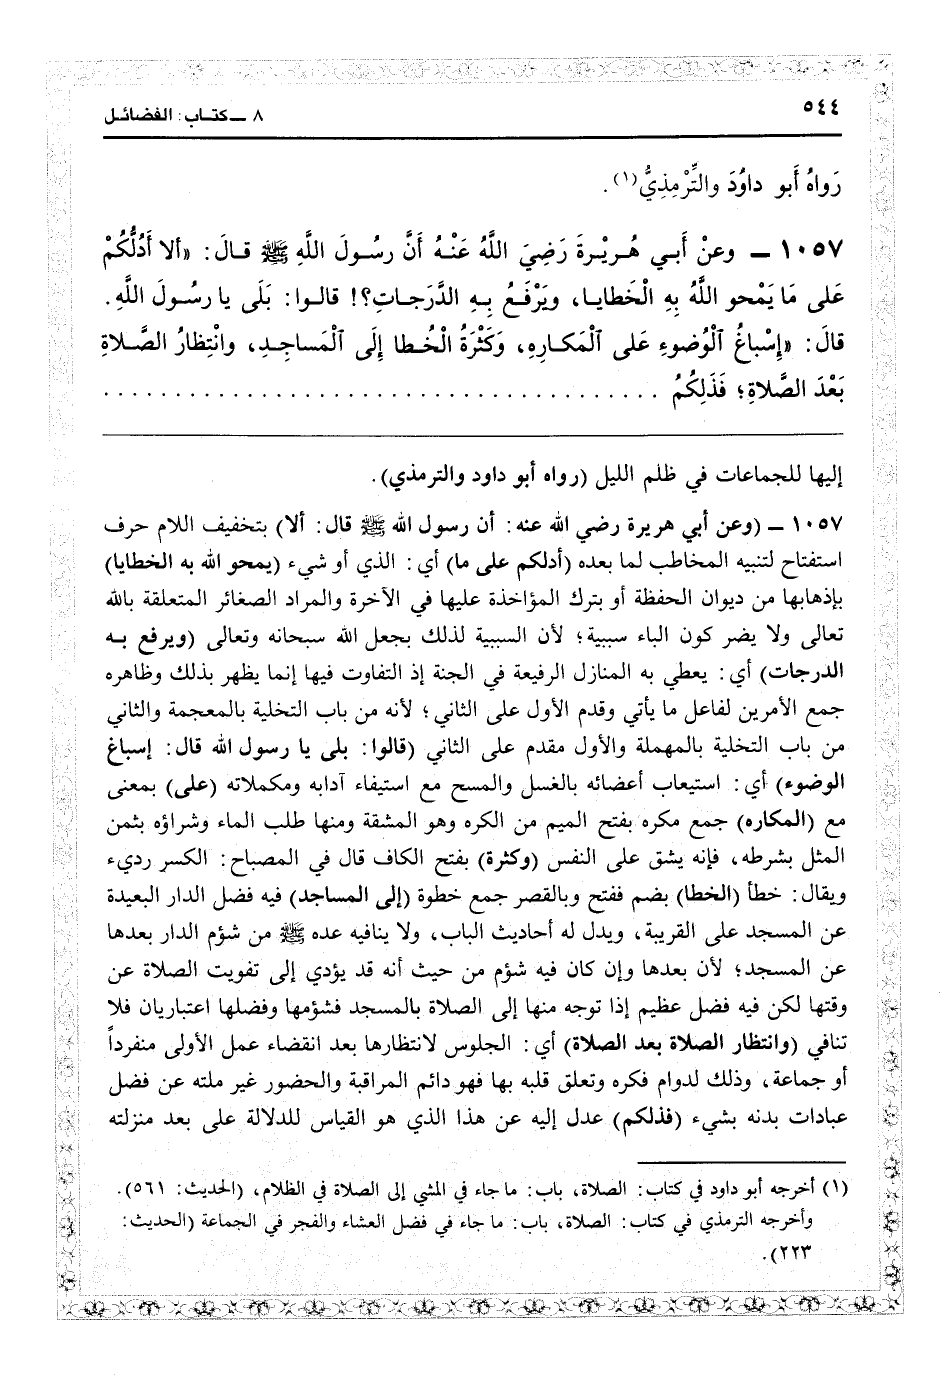 ٥٤٤
٨ ــ كتاب: الفضائل
رَوَاهُ أَبو دَاوُدَ والتِّرْمِذِيُّ(١).
١٠٥٧ ــ وعنْ أَبي هُريْرةَ رَضِيَ اللَّهُ عَنْهُ أَنَّ رسُولَ اللَّهِ ﷺ قالَ: «ألا أَدُلُّكُمْ
عَلى مَا يَمْحو اللَّهُ بِهِ الْخَطايا، ويَرْفَعُ بِهِ الدَّرَجاتِ؟! قالوا: بَلَى يا رسُولَ اللَّهِ.
قالَ: «إسْباغُ ٱلْوُضوءِ عَلى ٱلْمَكارِهِ، وَكَثْرَةُ الْخُطا إلَى ٱلْمَساجِدِ، وانْتِظارُ الصَّلاةِ
بَعْدَ الصَّلاةِ؛ فَذَلِكُمُ . . . . . . . . . . . . . . . . . . . . . . . . . . . . . . . . . . . . . . .
إليها للجماعات في ظلم الليل (رواه أبو داود والترمذي).
١٠٥٧ ــ (وعن أبي هريرة رضي الله عنه: أن رسول الله ﷺ قال: ألا) بتخفيف اللام حرف
استفتاح لتنبيه المخاطب لما بعده (أدلكم على ما) أي: الذي أو شيء (يمحو الله به الخطايا)
بإذهابها من ديوان الحفظة أو بترك المؤاخذة عليها في الآخرة والمراد الصغائر المتعلقة بالله
تعالى ولا يضر كون الباء سببية؛ لأن السببية لذلك بجعل الله سبحانه وتعالى (ويرفع به
الدرجات) أي: يعطي به المنازل الرفيعة في الجنة إذ التفاوت فيها إنما يظهر بذلك وظاهره
جمع الأمرين لفاعل ما يأتي وقدم الأول على الثاني؛ لأنه من باب التخلية بالمعجمة والثاني
من باب التحلية بالمهملة والأول مقدم على الثاني (قالوا: بلى يا رسول الله قال: إسباغ
الوضوء) أي: استيعاب أعضائه بالغسل والمسح مع استيفاء آدابه ومكملاته (على) بمعنى
مع (المكاره) جمع مكره بفتح الميم من الكره وهو المشقة ومنها طلب الماء وشراؤه بثمن
المثل بشرطه، فإنه يشق على النفس (وكثرة) بفتح الكاف قال في المصباح: الكسر رديء
ويقال: خطأ (الخطا) بضم ففتح وبالقصر جمع خطوة (إلى المساجد) فيه فضل الدار البعيدة
عن المسجد على القريبة، ويدل له أحاديث الباب، ولا ينافيه عده ﷺ من شؤم الدار بعدها
عن المسجد؛ لأن بعدها وإن كان فيه شؤم من حيث أنه قد يؤدي إلى تفويت الصلاة عن
وقتها لكن فيه فضل عظيم إذا توجه منها إلى الصلاة بالمسجد فشؤمها وفضلها اعتباريان فلا
تنافي (وانتظار الصلاة بعد الصلاة) أي: الجلوس لانتظارها بعد انقضاء عمل الأولى منفرداً
أو جماعة، وذلك لدوام فكره وتعلق قلبه بها فهو دائم المراقبة والحضور غير ملته عن فضل
عبادات بدنه بشيء (فذلكم) عدل إليه عن هذا الذي هو القياس للدلالة على بعد منزلته
(١) أخرجه أبو داود في كتاب: الصلاة، باب: ما جاء في المشي إلى الصلاة في الظلام، (الحديث: ٥٦١).
وأخرجه الترمذي في كتاب: الصلاة، باب: ما جاء في فضل العشاء والفجر في الجماعة (الحديث:
٢٢٣).